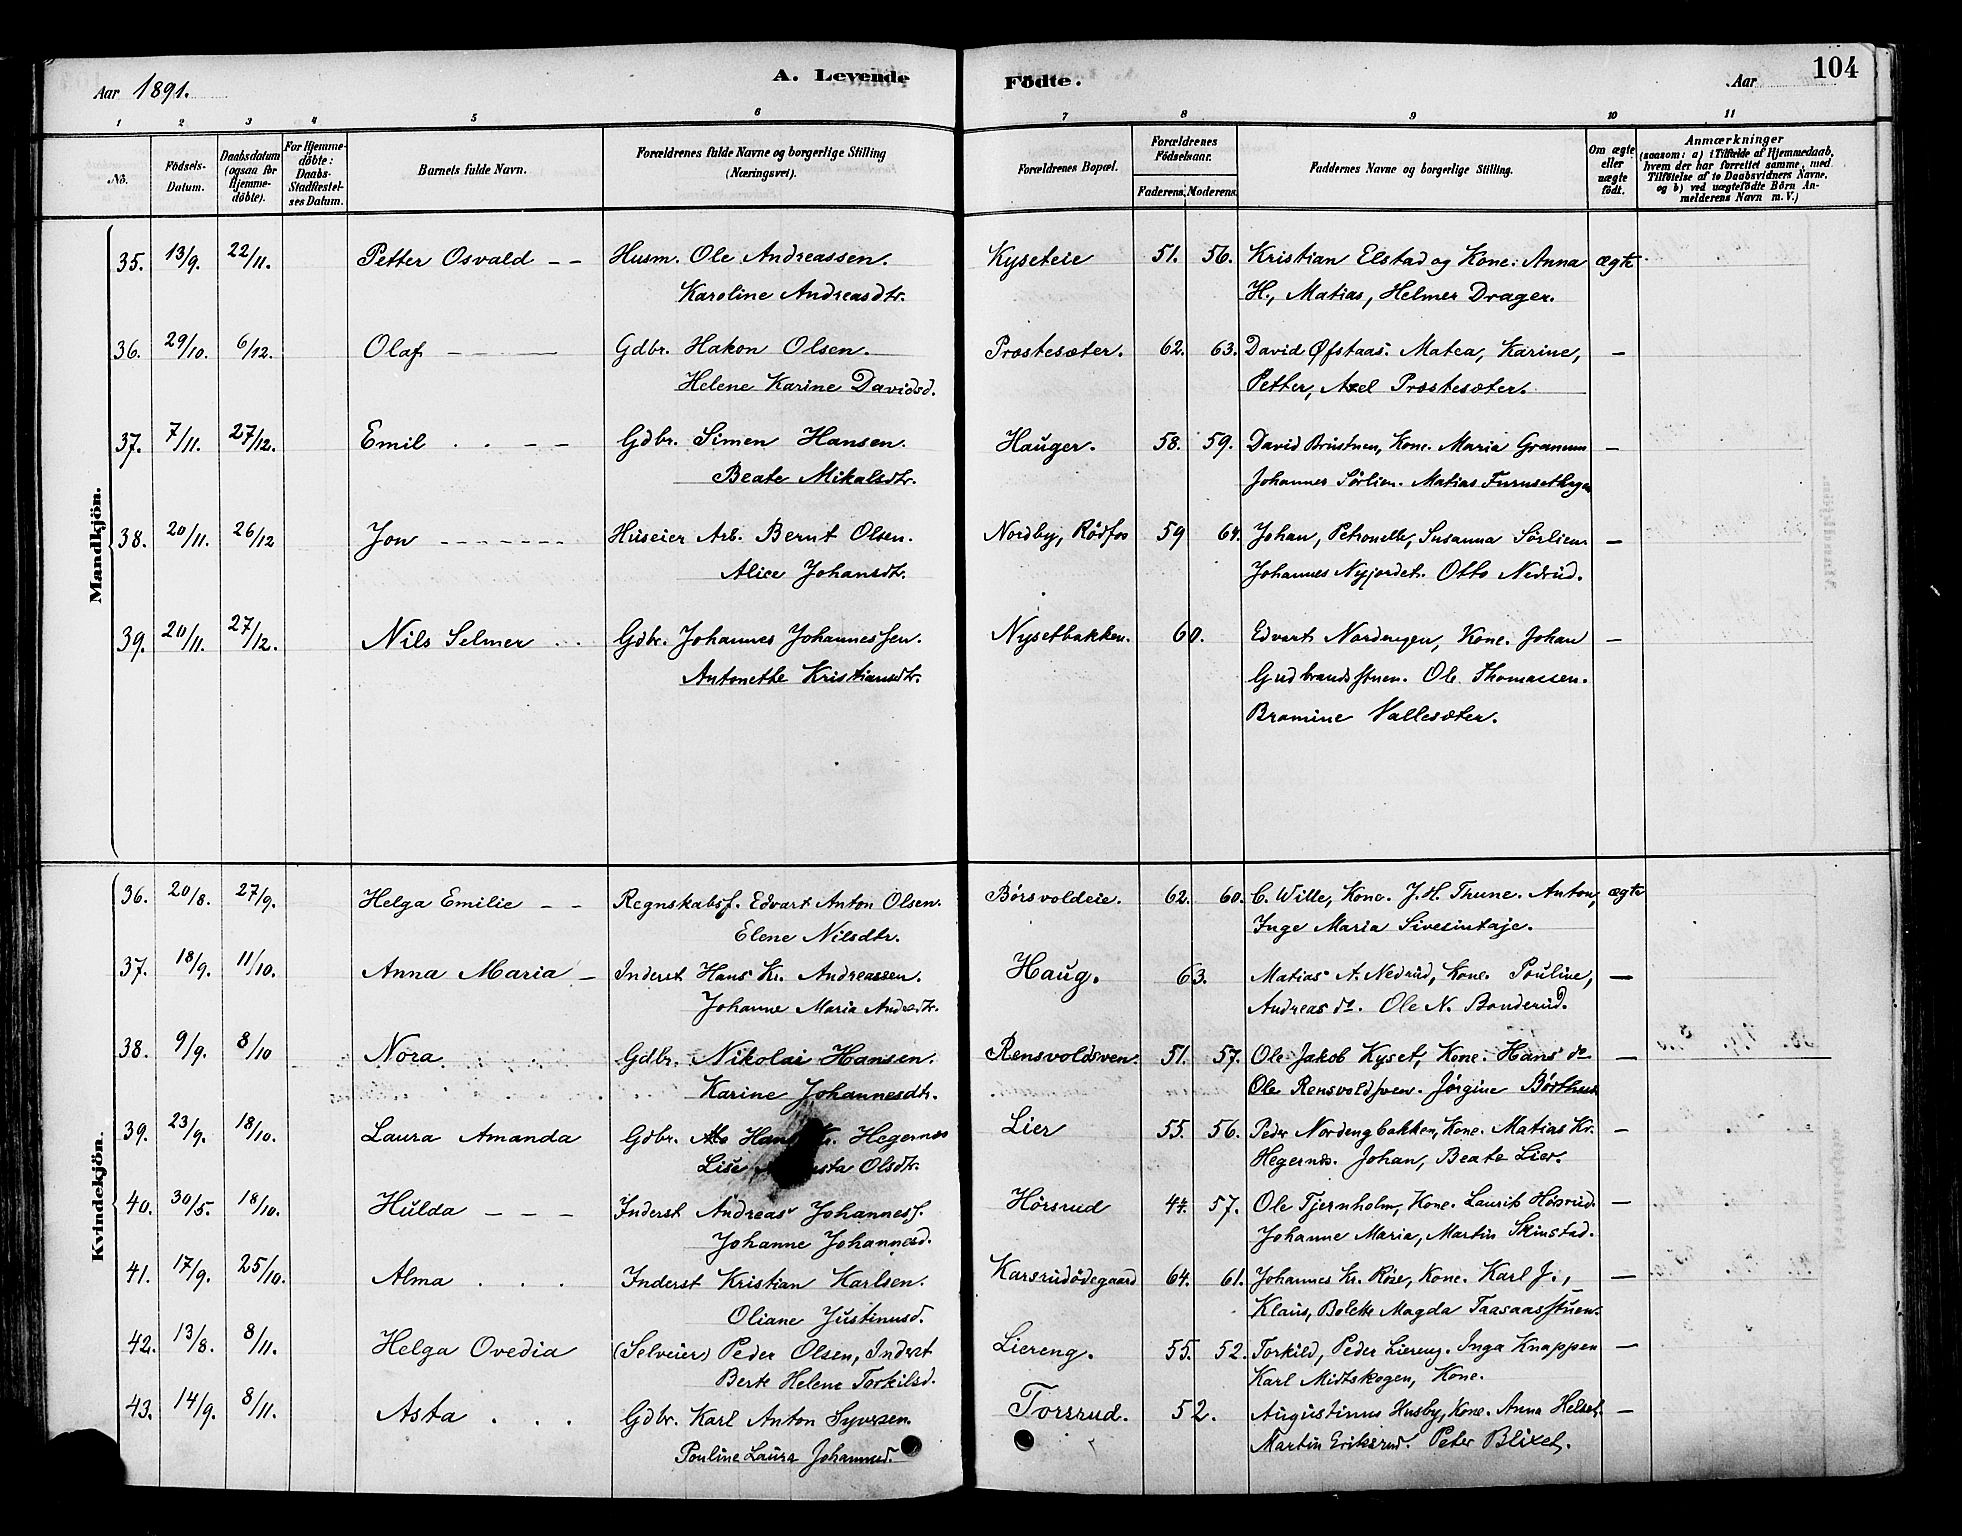 104
A. Levende Födte.
Aar 1891.
Aar
1 2 3 4 5 6 7 8 9 10 11
No.
Födsels-Datum.
Daabsdatum (ogsaa for Hjemme-döbte).
For Hjemme-döbte: Daabs-Stadfæstel-ses Datum.
Barnets fulde Navn.
Forældrenes fulde Navne og borgerlige Stilling (Næringsvei).
Forældrenes Bopæl.
Forældrenes Födselsaar.
Faderens. Moderens.
Faddernes Navne og borgerlige Stilling.
Om ægte eller uægte födt.
Anmærkninger
(saasom: a) i Tilfælde af Hjemmedaab, hvem der har forrettet samme, med Tilföielse af to Daabsvidners Navne, og b) ved uægtefödte Börn An-melderens Navn m. V.)
Mandkjön.
35. 13/9. 22/11. Petter Osvald – – Husm. Ole Andreassen. Kyseteie 51. 56. Kristian Elstad og Kone. Anna ægte
Karoline Andreasdtr. H., Matias, Helmer Drager.
36. 29/10. 6/12. Olaf – – – Gdbr. Hakon Olsen. Præstesæter. 62. 63. David Øfstaas. Matea, Karine, –
Helene Karine Davidsd. Petter, Axel Præstesæter.
37. 7/11. 27/12. Emil . . – – Gdbr. Simen Hansen. Hauger. 58. 59. David Brustuen, Kone. Maria Granum –
Beate Mikalsdtr. Johannes Sørlien. Matias Furusethagen
38. 20/11. 26/12 Jon – – – – Huseier Arb. Bernt Olsen. Nordby, Rödfos 59 64. Johan, Petronelle, Susanna Sørlien. –
Alice Johansdtr. Johannes Nyjordet. Otto Nedrud.
39. 20/11. 27/12. Nils Selmer . . Gdbr. Johannes Johannessen. Nysetbakken. 60. Edvart Nordengen, Kone. Johan –
Antonette Kristiansdtr. Gudbrandsstuen. Ole Thomassen.
Bramine Vallesæter.
Kvindekjön.
36. 20/8. 27/9. Helga Emilie – – Regnskabsf. Edvart Anton Olsen. Børsvoldeie. 62. 60. C. Wille, Kone. J. H. Thune. Anton, ægte
Elene Nilsdtr. Inge Maria Sivesintaje.
37. 18/9. 11/10. Anna Maria – Inderst Hans Kr. Andreassen. Haug. 63. Matias A. Nedrud, Kone. Pouline, –
Johanne Maria Andrdtr. Andreas do. Ole N. Bonderud.
38. 9/9. 8/10 Nora. . . Gdbr. Nikolai Hansen. Rensvoldsven. 51. 57. Ole Jakob Kyset, Kone. Hans do –
Karine Johannesdtr. Ole Rensvoldsven. Jørgine Børthus
39. 23/9. 18/10. Laura Amanda Gdbr. Hans Kr. Hegernes Lier 55. 56. Peder Nordengbakken, Kone. Matias Kr. –
Lise Olsdtr. Hegernes. Johan, Beate Lier.
40. 30/5. 18/10. Hulda – – – Inderst Andreas Johanness. Hørsrud 44. 57. Ole Tjernholm, Kone. Laurits Hørsrud. –
Johanne Johannesd. Johanne Maria, Martin Skinstad.
41. 17/9. 25/10. Alma . . . Inderst Kristian Karlsen. Karsrudødegaard 64. 61. Johannes Kr. Röise, Kone. Karl J., –
Oliane Justinusd. Klaus, Bolette Magda Taasaasstuen.
42. 13/8. 8/11. Helga Ovedia (Selveier) Peder Olsen, Inderst Liereng. 55. 52. Torkild, Peder Liereng. Inga Knappen –
Berte Helene Torkilsd. Karl Midtskogen, Kone.
43. 14/9. 8/11. Asta . . . Gdbr. Karl Anton Syversen. Torsrud. 52. Augustinus Husby, Kone. Anna Helset. –
Pouline Laura Johannesd. Martin Eriksrud. Peter Blixet.